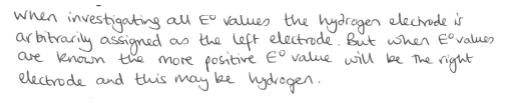 When investigating all E° values the hydrogen electrode is
arbitrarily assigned as the left electrode. But when E° values
are known the more positive E° value will be the right
electrode and this may be hydrogen.